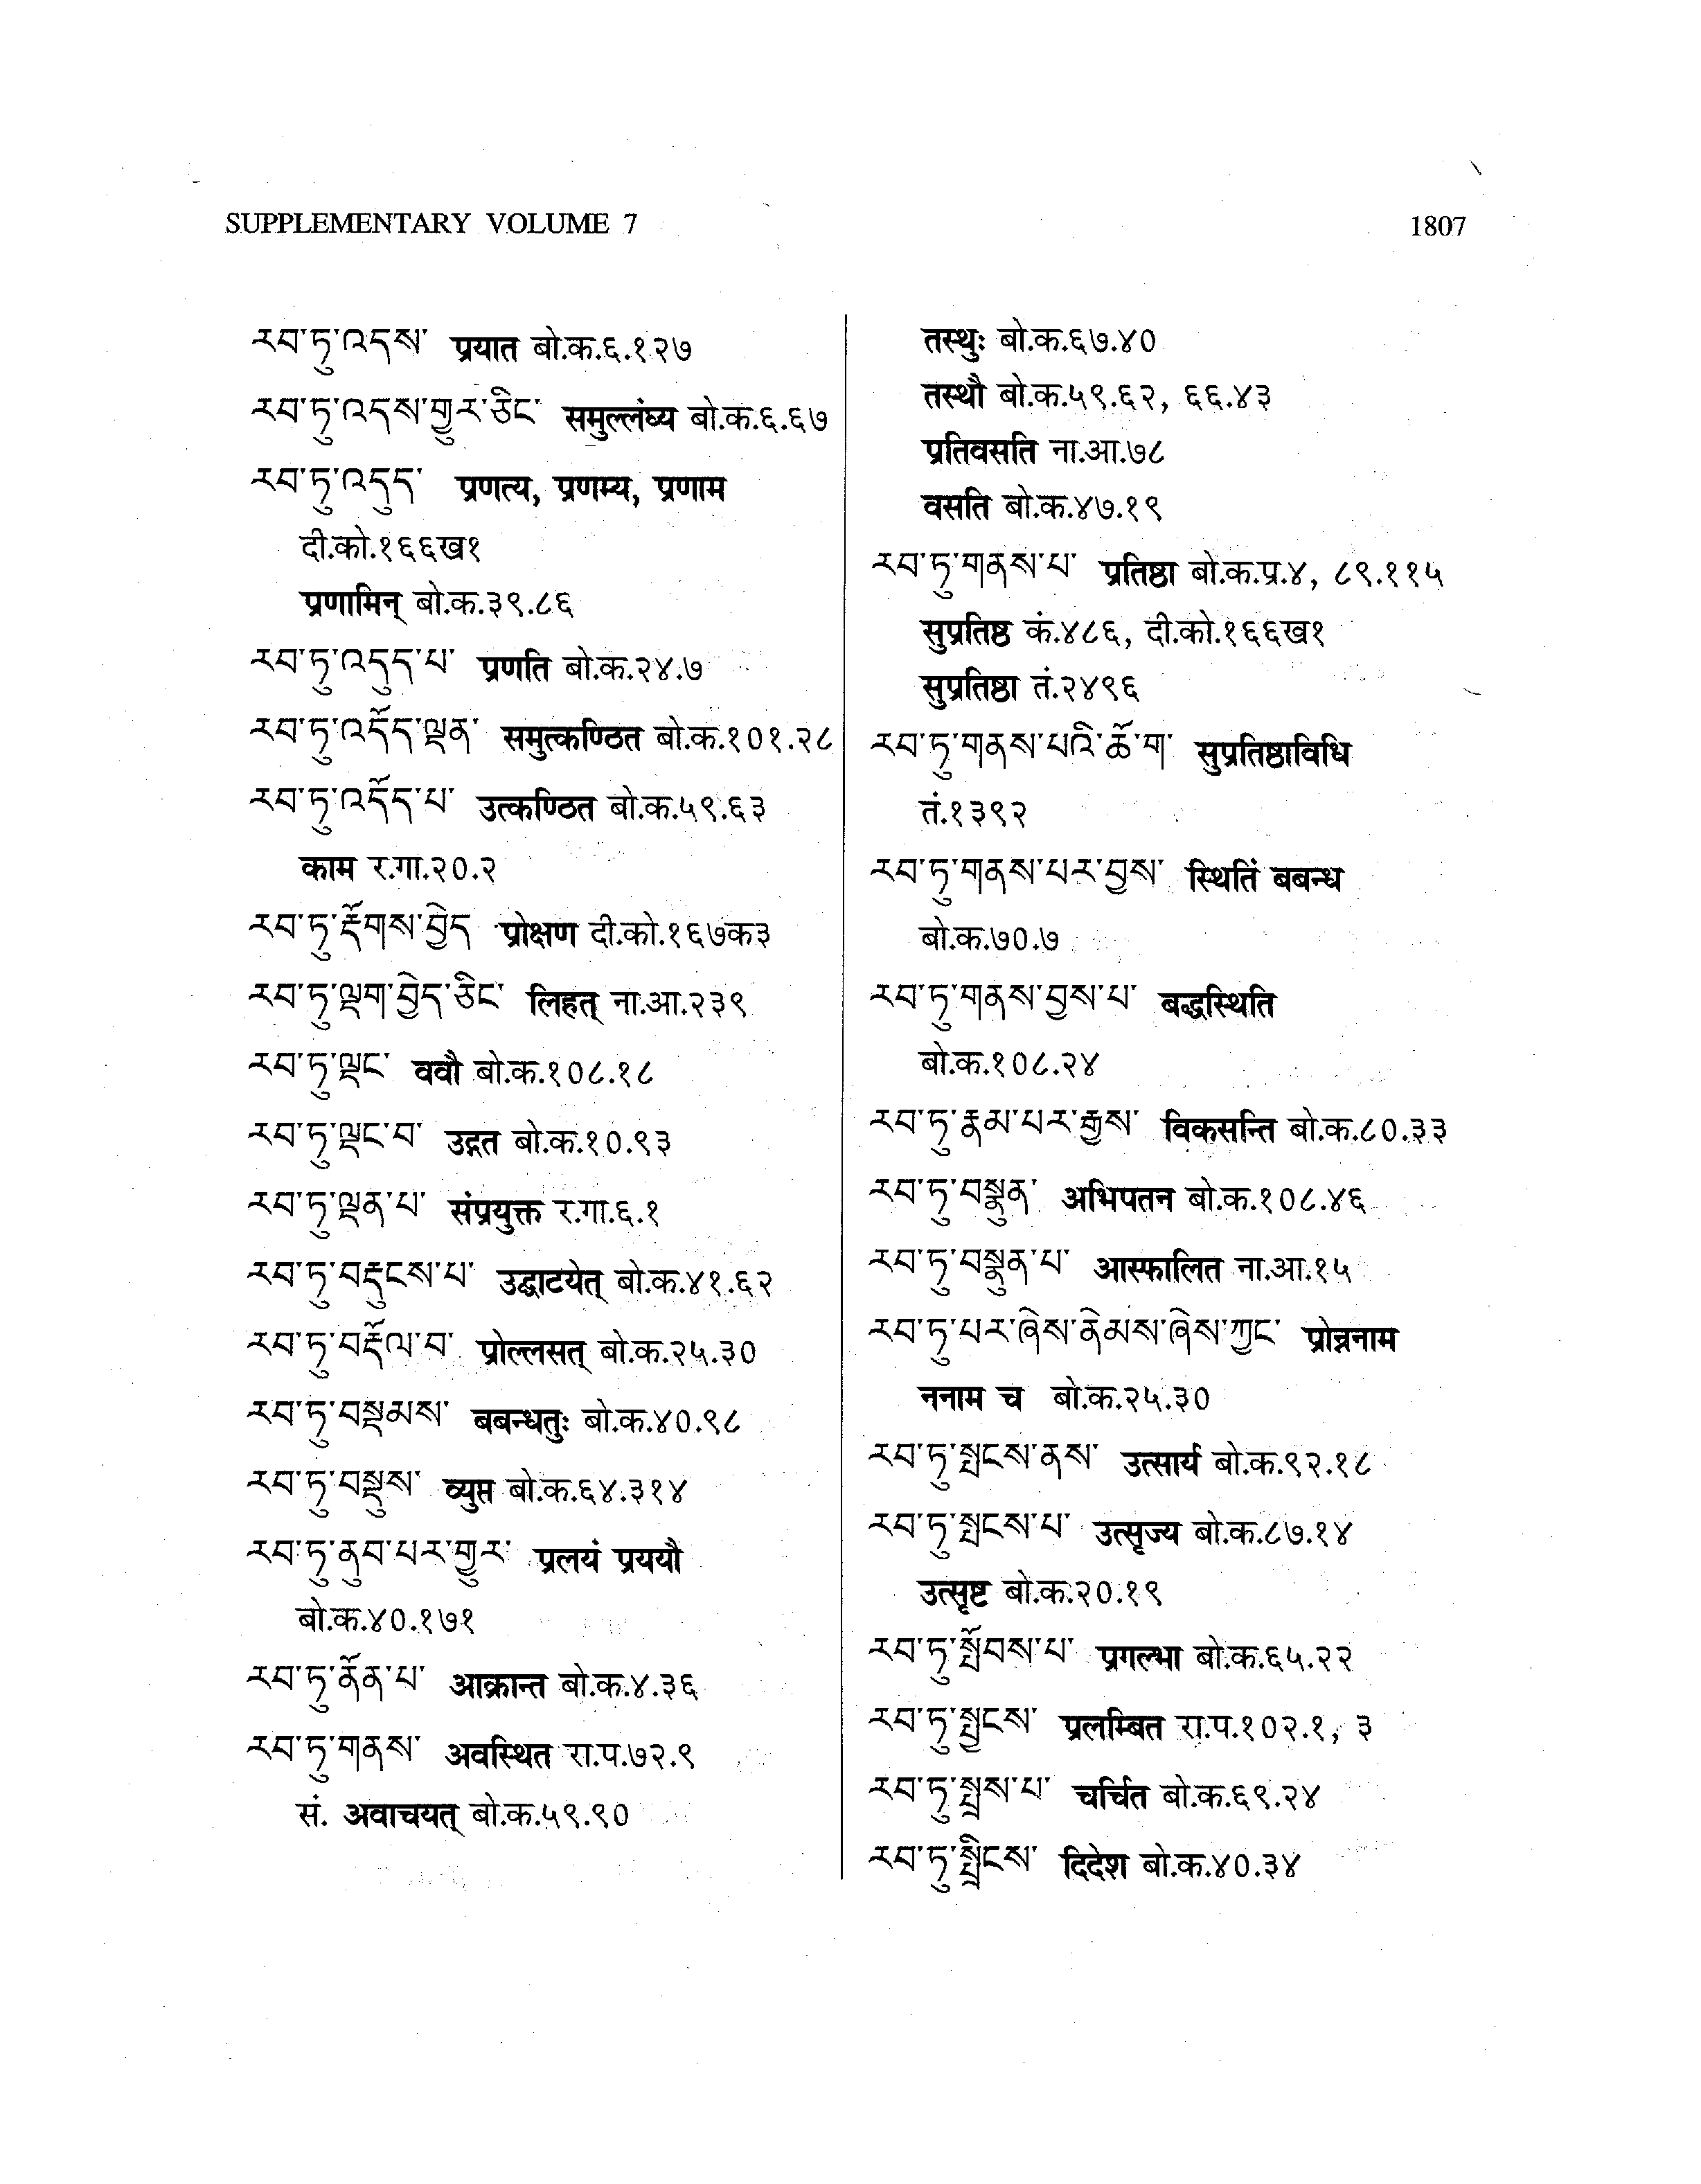 SUPPLEMENTARY VOLUME 7
1807
རབ་ཏུ་འདས་ प्रयात बो.क.६.१२७
རབ་ཏུ་འདས་གྱུར་ཅིང་ समुल्लंघ्य बो.क.६.६७
རབ་ཏུ་འདུད་ प्रणत्य, प्रणम्य, प्रणाम
दी.को.१६६ख१
प्रणामिन् बो.क.३९.८६
རབ་ཏུ་འདུད་པ་ प्रणति बो.क.२४.७
རབ་ཏུ་འདོད་ལྡན་ समुत्कण्ठित बो.क.१०१.२८
རབ་ཏུ་འདོད་པ་ उत्कण्ठित बो.क.५९.६३
काम र.गा.२०.२
རབ་ཏུ་རྫོགས་བྱེད प्रोक्षण दी.को.१६७क३
རབ་ཏུ་ལྡག་བྱེད་ཅིང་ लिहत् ना.आ.२३९
རབ་ཏུ་ལྡང་ ववौ बो.क.१०८.१८
རབ་ཏུ་ལྡང་བ་ उद्गत बो.क.१०.९३
རབ་ཏུ་ལྡན་པ་ संप्रयुक्त र.गा.६.१
རབ་ཏུ་བརྡུངས་པ་ उद्घाटयेत् बो.क.४१.६२
རབ་ཏུ་བརྡོལ་བ་ प्रोल्लसत् बो.क.२५.३०
རབ་ཏུ་བསྡམས་ बबन्धतुः बो.क.४०.९८
རབ་ཏུ་བསྡུས་ व्युप्त बो.क.६४.३१४
རབ་ཏུ་ནུབ་པར་གྱུར་ प्रलयं प्रययौ
बो.क.४०.१७१
རབ་ཏུ་ནོན་པ་ आक्रान्त बो.क.४.३६
རབ་ཏུ་གནས་ अवस्थित रा.प.७२.९
सं. अवाचयत् बो.क.५९.९०
तस्थुः बो.क.६७.४०
तस्थौ बो.क.५९.६२, ६६.४३
प्रतिवसति ना.आ.७८
वसति बो.क.४७.१९
རབ་ཏུ་གནས་པ་ प्रतिष्ठा बो.क.प्र.४, ८९.११५
सुप्रतिष्ठ कं.४८६, दी.को.१६६ख१
सुप्रतिष्ठा तं.२४९६
རབ་ཏུ་གནས་པའི་ཆོ་ག་ सुप्रतिष्ठाविधि
तं.१३९२
རབ་ཏུ་གནས་པར་བྱས་ स्थितिं बबन्ध
बो.क.७०.७
རབ་ཏུ་གནས་བྱས་པ་ बद्धस्थिति
बो.क.१०८.२४
རབ་ཏུ་རྣམ་པར་རྒྱས་ विकसन्ति बो.क.८०.३३
རབ་ཏུ་བསྣུན་ अभिपतन बो.क.१०८.४६
རབ་ཏུ་བསྣུན་པ་ आस्फालित ना.आ.१५
རབ་ཏུ་པར་ཞེས་ནེམས་ཞེས་ཀྱང་ प्रोन्ननाम
ननाम च बो.क.२५.३०
རབ་ཏུ་སྤངས་ནས་ उत्सार्य बो.क.९२.१८
རབ་ཏུ་སྤངས་པ་ उत्सृज्य बो.क.८७.१४
उत्सृष्ट बो.क.२०.१९
རབ་ཏུ་སྤོབས་པ་ प्रगल्भा बो.क.६५.२२
རབ་ཏུ་སྤྱངས་ प्रलम्बित रा.प.१०२.१, ३
རབ་ཏུ་སྤྲས་པ་ चर्चित बो.क.६९.२४
རབ་ཏུ་སྤྲིངས་ दिदेश बो.क.४०.३४